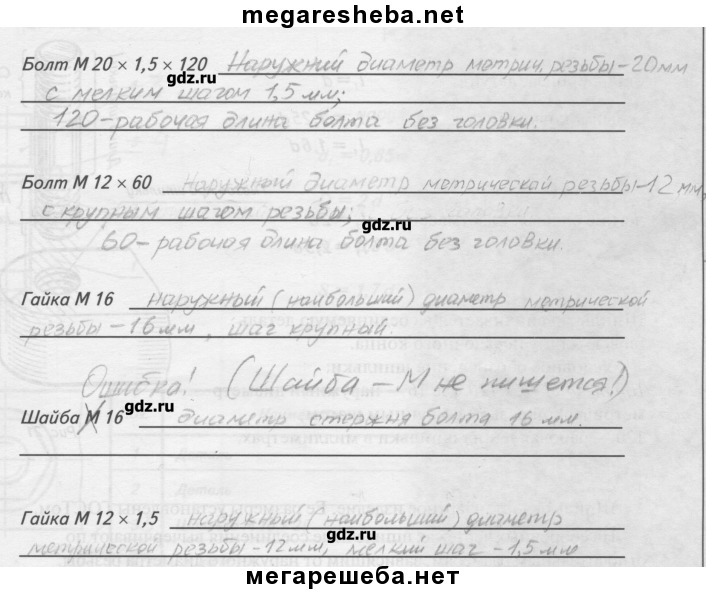 megaresheba.net
Болт М 20 × 1,5 × 120 Наружний диаметр метрич. резьбы – 20 мм
gdz.ru
с мелким шагом 1,5 мм;
120 – рабочая длина болта без головки.
Болт М 12 × 60 Наружный диаметр метрической резьбы – 12 мм,
с крупным шагом резьбы;
gdz.ru
60 – рабочая длина болта без головки.
Гайка М 16 наружный (наибольший) диаметр метрической
резьбы – 16 мм, шаг крупный.
Ошибка! (Шайба – М не пишется!)
gdz.ru
Шайба М 16 диаметр стержня болта 16 мм.
Гайка М 12 × 1,5 наружный (наибольший) диаметр
gdz.ru
метрической резьбы – 12 мм, мелкий шаг – 1,5 мм
мегарешеба.нет